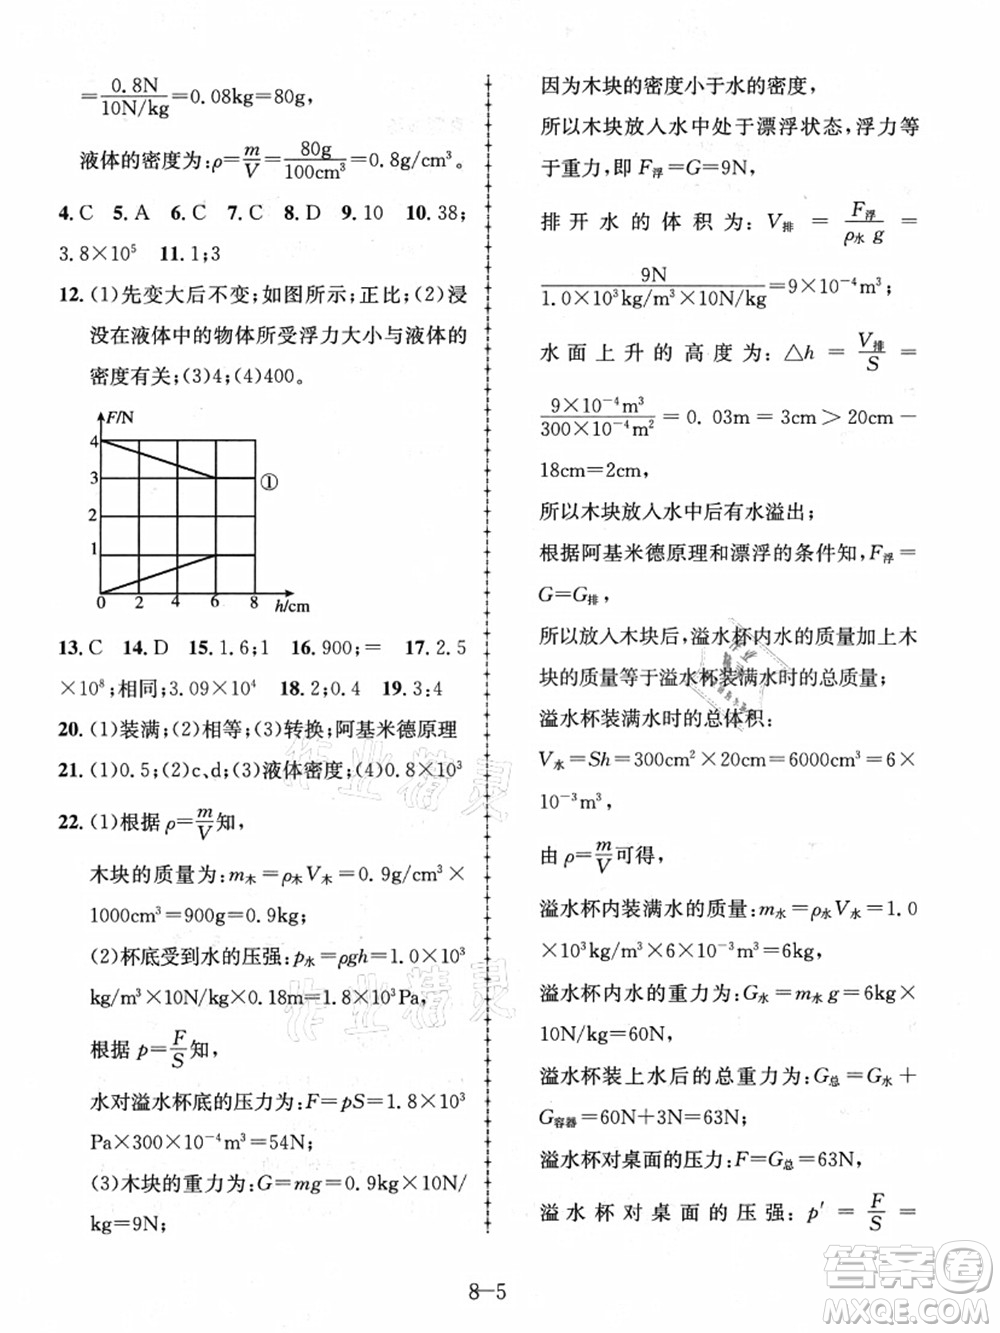 =0.8N/10N/kg=0.08kg=80g,
液体的密度为:ρ=m/V=80g/100cm³=0.8g/cm³。
4. C 5. A 6. C 7. C 8. D 9. 10 10. 38;
3.8×10⁵ 11. 1;3
12. (1)先变大后不变;如图所示;正比;(2)浸
没在液体中的物体所受浮力大小与液体的
密度有关;(3)4;(4)400。
F/N
4
3
①
2
1
0 2 4 6 8 h/cm
13. C 14. D 15. 1.6;1 16. 900;= 17. 2.5
×10⁸;相同;3.09×10⁴ 18. 2;0.4 19. 3:4
20. (1)装满;(2)相等;(3)转换;阿基米德原理
21. (1)0.5;(2)c、d;(3)液体密度;(4)0.8×10³
22. (1)根据ρ=m/V知,
木块的质量为:m木=ρ木V木=0.9g/cm³×
1000cm³=900g=0.9kg;
(2)杯底受到水的压强:p水=ρgh=1.0×10³
kg/m³×10N/kg×0.18m=1.8×10³Pa,
根据 p=F/S知,
水对溢水杯底的压力为:F=pS=1.8×10³
Pa×300×10⁻⁴m³=54N;
(3)木块的重力为:G=mg=0.9kg×10N/
kg=9N;
因为木块的密度小于水的密度,
所以木块放入水中处于漂浮状态,浮力等
于重力,即 F浮=G=9N,
排开水的体积为:V排=F浮/ρ水g=
9N/1.0×10³kg/m³×10N/kg=9×10⁻⁴m³;
水面上升的高度为:△h=V排/S=
9×10⁻⁴m³/300×10⁻⁴m²=0.03m=3cm>20cm-
18cm=2cm,
所以木块放入水中后有水溢出;
根据阿基米德原理和漂浮的条件知,F浮=
G=G排,
所以放入木块后,溢水杯内水的质量加上木
块的质量等于溢水杯装满水时的总质量;
溢水杯装满水时的总体积:
V水=Sh=300cm²×20cm=6000cm³=6×
10⁻³m³,
由ρ=m/V可得,
溢水杯内装满水的质量:m水=ρ水V水=1.0
×10³kg/m³×6×10⁻³m³=6kg,
溢水杯内水的重力为:G水=m水g=6kg×
10N/kg=60N,
溢水杯装上水后的总重力为:G总=G水+
G容器=60N+3N=63N;
溢水杯对桌面的压力:F=G总=63N,
溢水杯对桌面的压强:p′=F/S=
8—5
作业精灵
作业精灵
答案圈
MXQE.COM